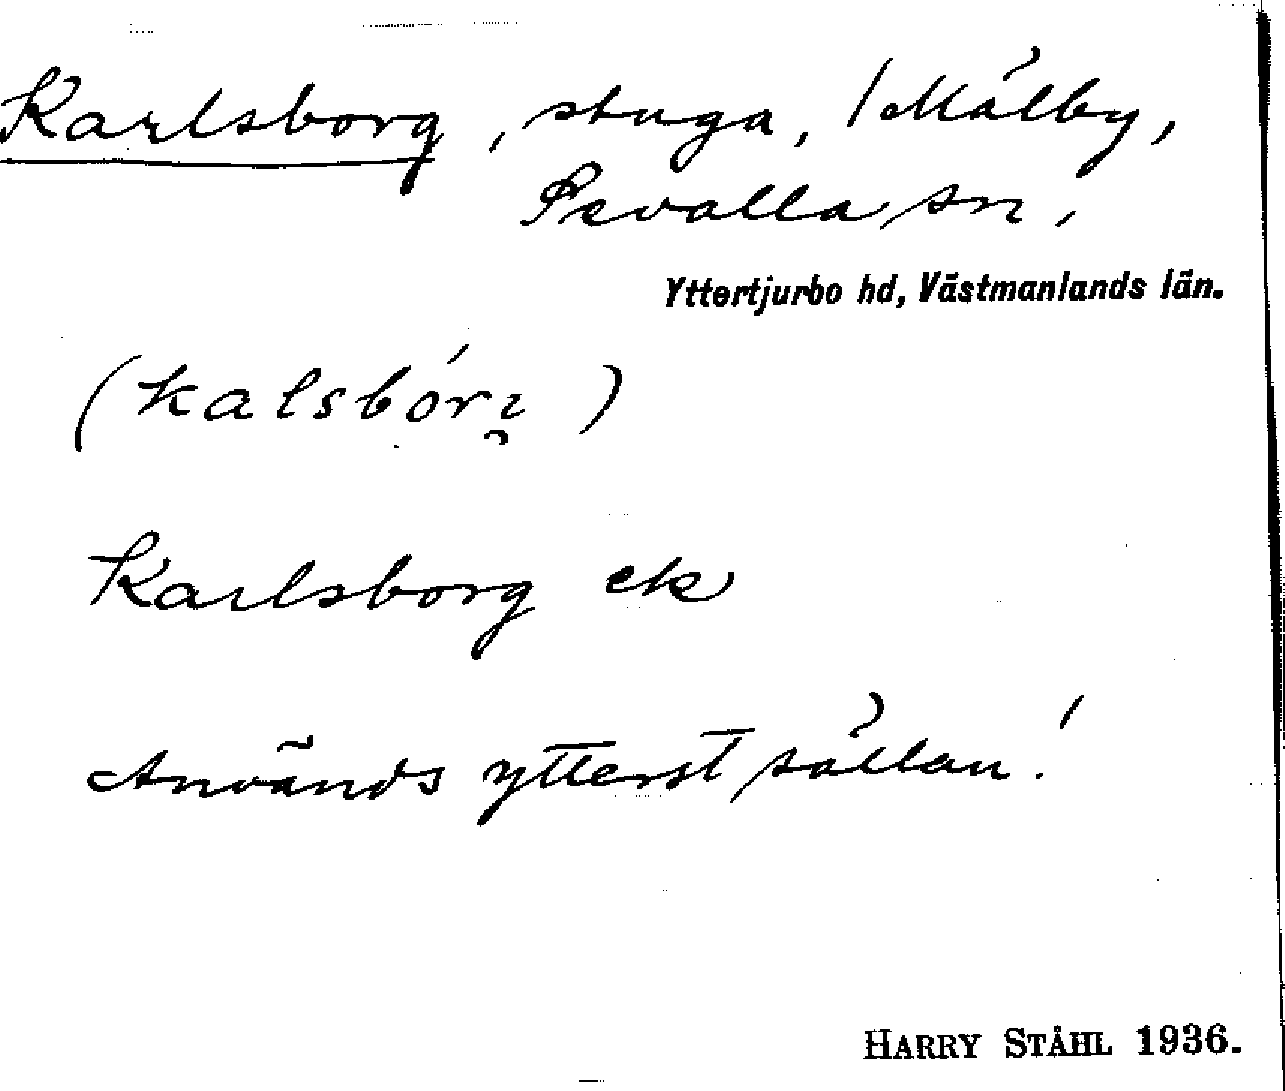 Karlsborg, stuga, / Målby,
Sevalla sn,
Yttertjurbo hd, Västmanlands län.
Karlsborg ek
Används ytterst sällan!
HARRY STÅHL 1936.